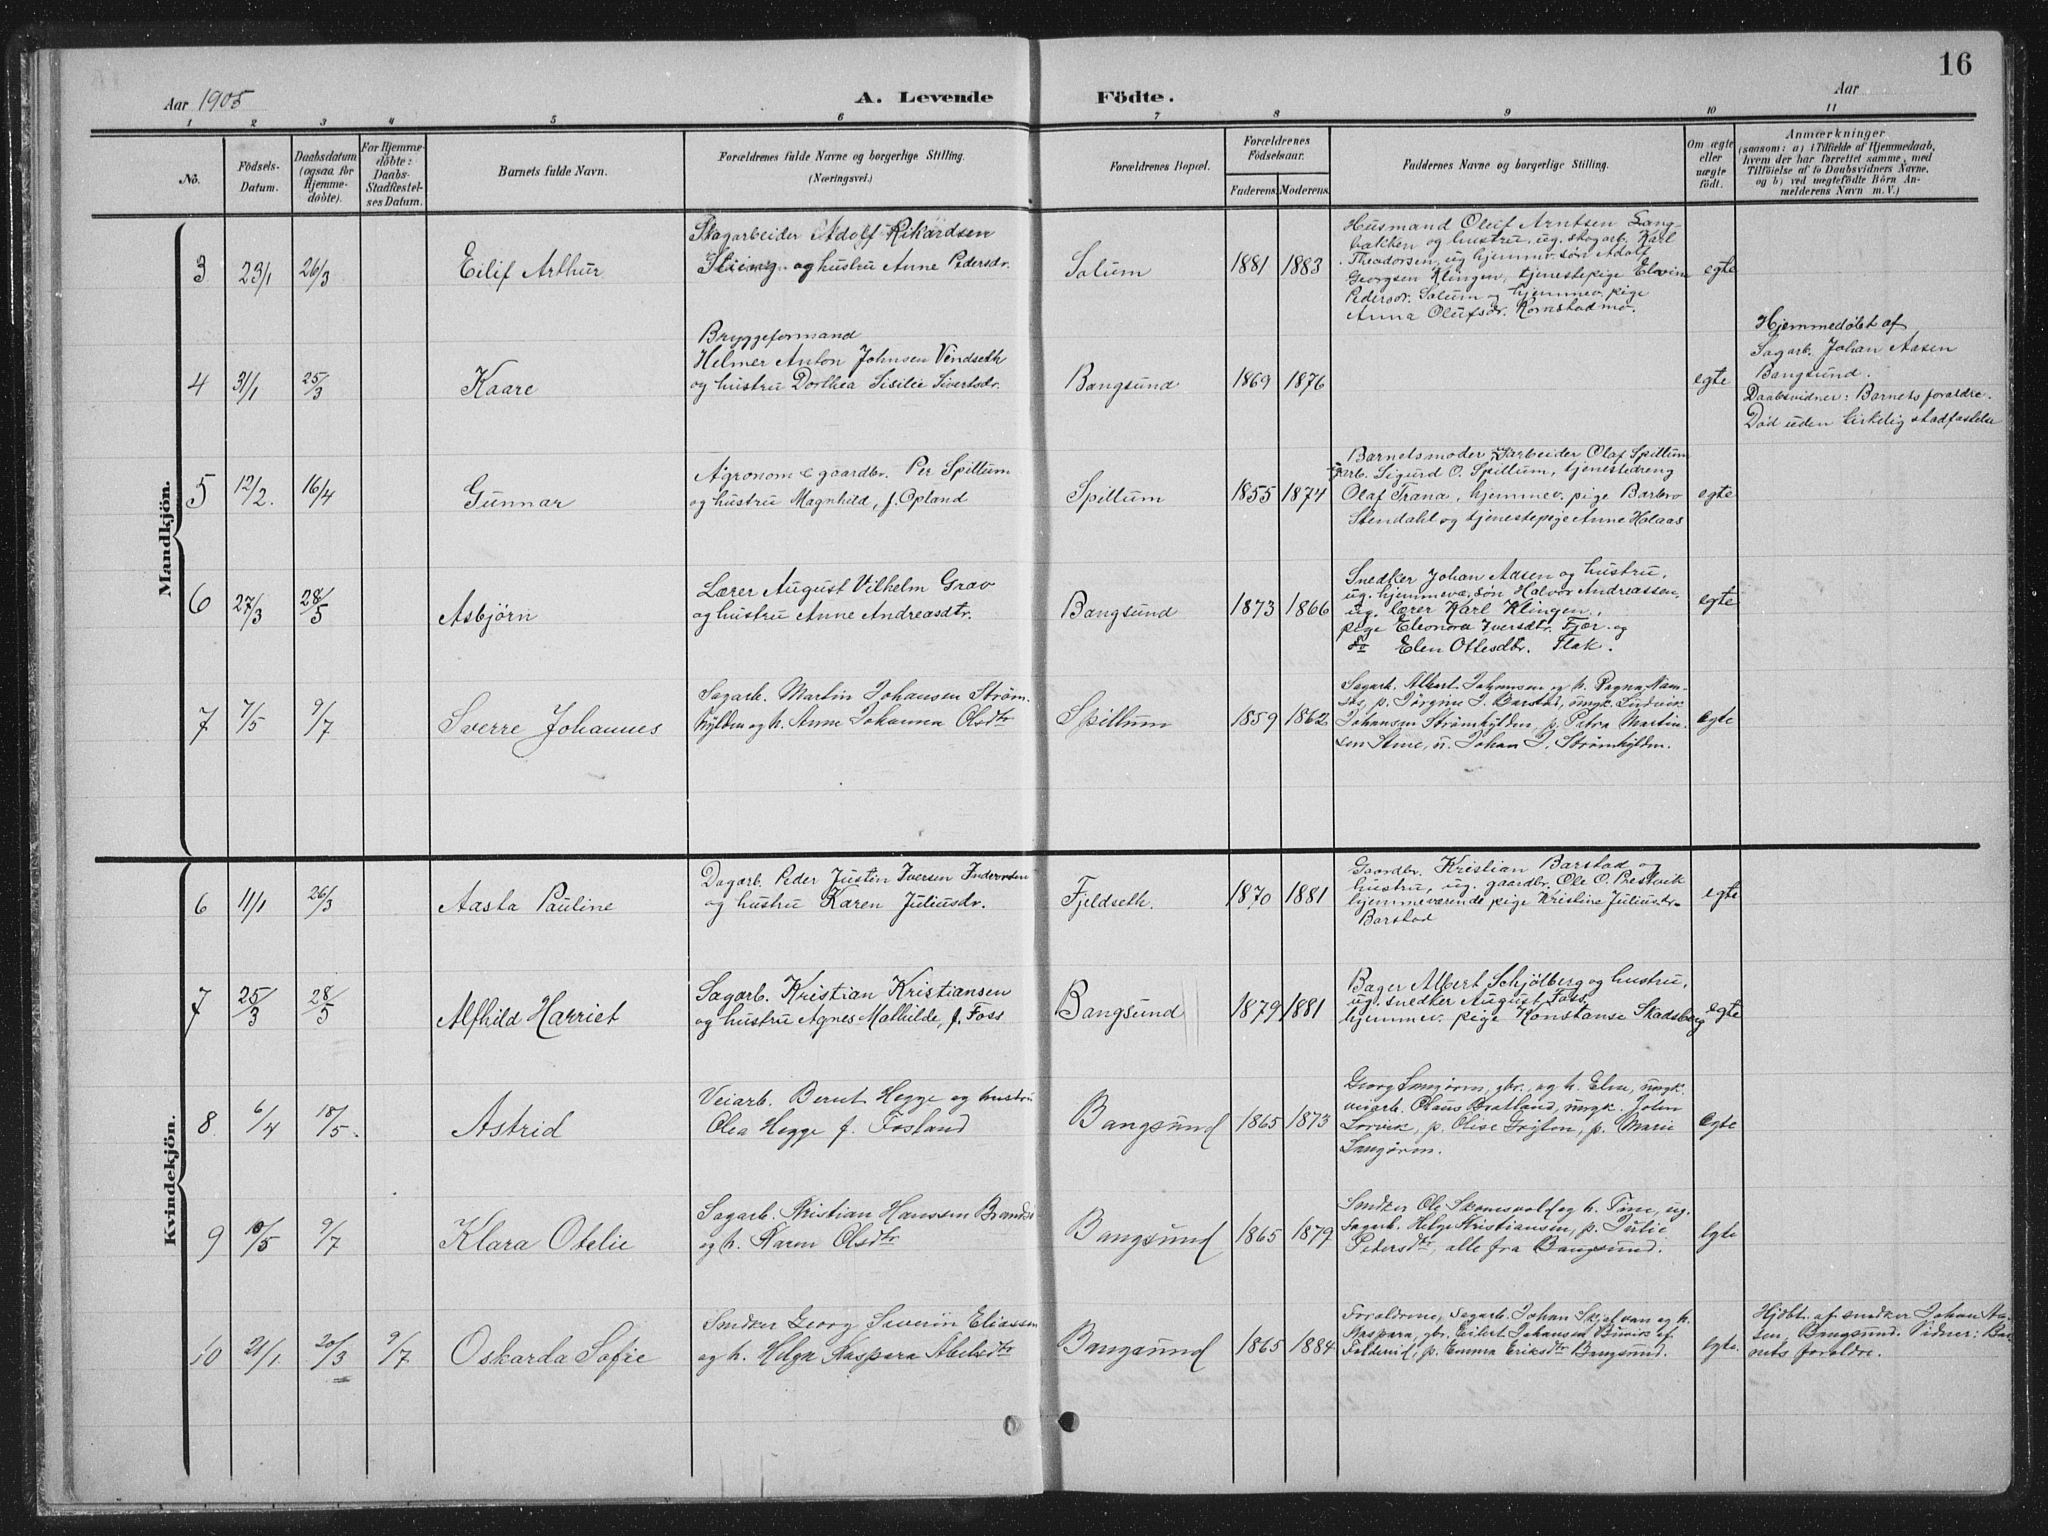 16
Aar 1905
A. Levende Födte.
Aar
1 2 3 4 5 6 7 8 9 10 11
No.
Födsels-
Datum.
Daabsdatum
(ogsaa for
Hjemme-
döbte).
For Hjemme-
döbte:
Daabs-
Stadfæstel-
ses Datum.
Barnets fulde Navn.
Forældrenes fulde Navne og borgerlige Stilling.
(Næringsvei.)
Forældrenes Bopæl.
Forældrenes
Födselsaar.
Faderens. Moderens.
Faddernes Navne og borgerlige Stilling.
Om ægte
eller
uægte
födt.
Anmærkninger
(saasom: a) i Tilfælde af Hjemmedaab,
hvem der har forrettet samme, med
Tilföielse af to Daabsvidners Navne,
og b) ved uægtefödte Börn An-
melderens Navn m. V.)
Mandkjön.
3 23/1 26/3
Eilif Arthur
Skogarbeider Adolf Rikardsen
og hustru Anne Pedersdr.
Solum
1881 1883
Husmand Oluf Arntsen Lang-
bakken og hustru, ug. skogarb. Karl
Theodorsen, ug hjemmev. søn Adolf
Georgsen Klingen, tjenestepige Elvine
Pedersdr. Solum og hjemmev. pige
Anna Olufsdr. Komstadmo.
egte
4 31/1 25/3
Kaare
Bryggeformand
Helmer Anton Johnsen Vendseth
og hustru Dorthea Sisilie Sivertsdr.
Bangsund
1869 1876
egte
Hjemmedøbt af
Sagarb. Johan Aasen
Bangsund.
Daabsvidner: Barnets forældre.
Død uden kirkelig stadfæstelse
5 12/2. 16/4
Gunnar
Agronom & gaardbr. Per Spillum
og hustru Magnhild, f. Opland
Spillum
1855 1874
Barnets moder, arbeider Olaf Spillum
arb. Sigurd O. Spillum, tjenestedreng
Olaf Trana, hjemmev. pige Barbro
Stendahl og tjenestepige Anne Holaas
egte
6 27/3 28/5
Asbjörn
Lærer August Vilhelm Grav
og hustru Anne Andreasdtr.
Bangsund
1873 1866
Snedker Johan Aasen og hustru,
ug. hjemmevæ. søn Halvor Andreassen,
ug. lærer Karl Klingen,
pige Eleonora Iversdtr. Fjær og
Elen Ottesdtr. Flak.
egte
7 7/5 9/7
Sverre Johannes
Sagarb. Martin Johansen Strøm-
hylden og h. Anne Johanna Olsdtr
Spillum
1859 1862
Sagarb. Albert Johannsen og h. Ragna Nam-
sos, p. Jørgine J. Barstad, ungk. Ludvik
Johansen Strømhylden, p. Petra Martin-
sen Sme, u. Johan J. Strømhylden.
egte
Kvindekjön.
6 11/1 26/3
Aasta Pauline
Dagarb. Peder Justin Iversen Inderosen
og hustru Karen Juliusdr.
Fjeldseth.
1870 1881
Gaardbr. Kristian Barstad og
hustru, ug. gaardbr. Ole O. Prestvik
hjemmeværende pige Kristine Juliusdr.
Barstad
egte
7 25/3 28/5
Alfhild Harriet
Sagarb. Kristian Kristiansen
og hustru Agnes Mathilde, f. Foss
Bangsund
1879 1881
Bager Albert Schjølberg og hustru,
ug. snedker August Foss,
hjemmev. pige Konstanse Skadsberg
egte
8 6/4 18/5.
Astrid
Veiarb. Bernt Hegge og hustru
Olea Hegge f. Fosland
Bangsund
1865 1873
Georg Langørm, gbr., og h. Elise, ungk.
veiarb. Olaus Bratland, ungk. John
Lorvik, p. Olise p. Marie
Langørm.
egte
9 10/5 9/7
Klara Otelie
Sagarb. Kristian Hanssen
og h. Karen Olsdtr
Bangsund
1865 1879
Snedker Ole og h. Tine, ug.
Sagarb. Helge Kristiansen, p. Julie
Petersdtr, alle fra Bangsund.
egte
10 21/1 20/3 9/7
Oskarda Sofie
Snedker Georg Severin Eliassen
og h. Helga Kaspara Abelsdtr
Bangsund
1865 1884
Forældrene, sagarb. Johan Skjelvan og h.
Kaspara, gbr. Eilert Johansen af
p. Emma Eriksdtr Bangsund.
egte.
Hjdbt. af snedker Johan Aa-
sen, Bangsund. Vidner: Bar-
nets forældre.